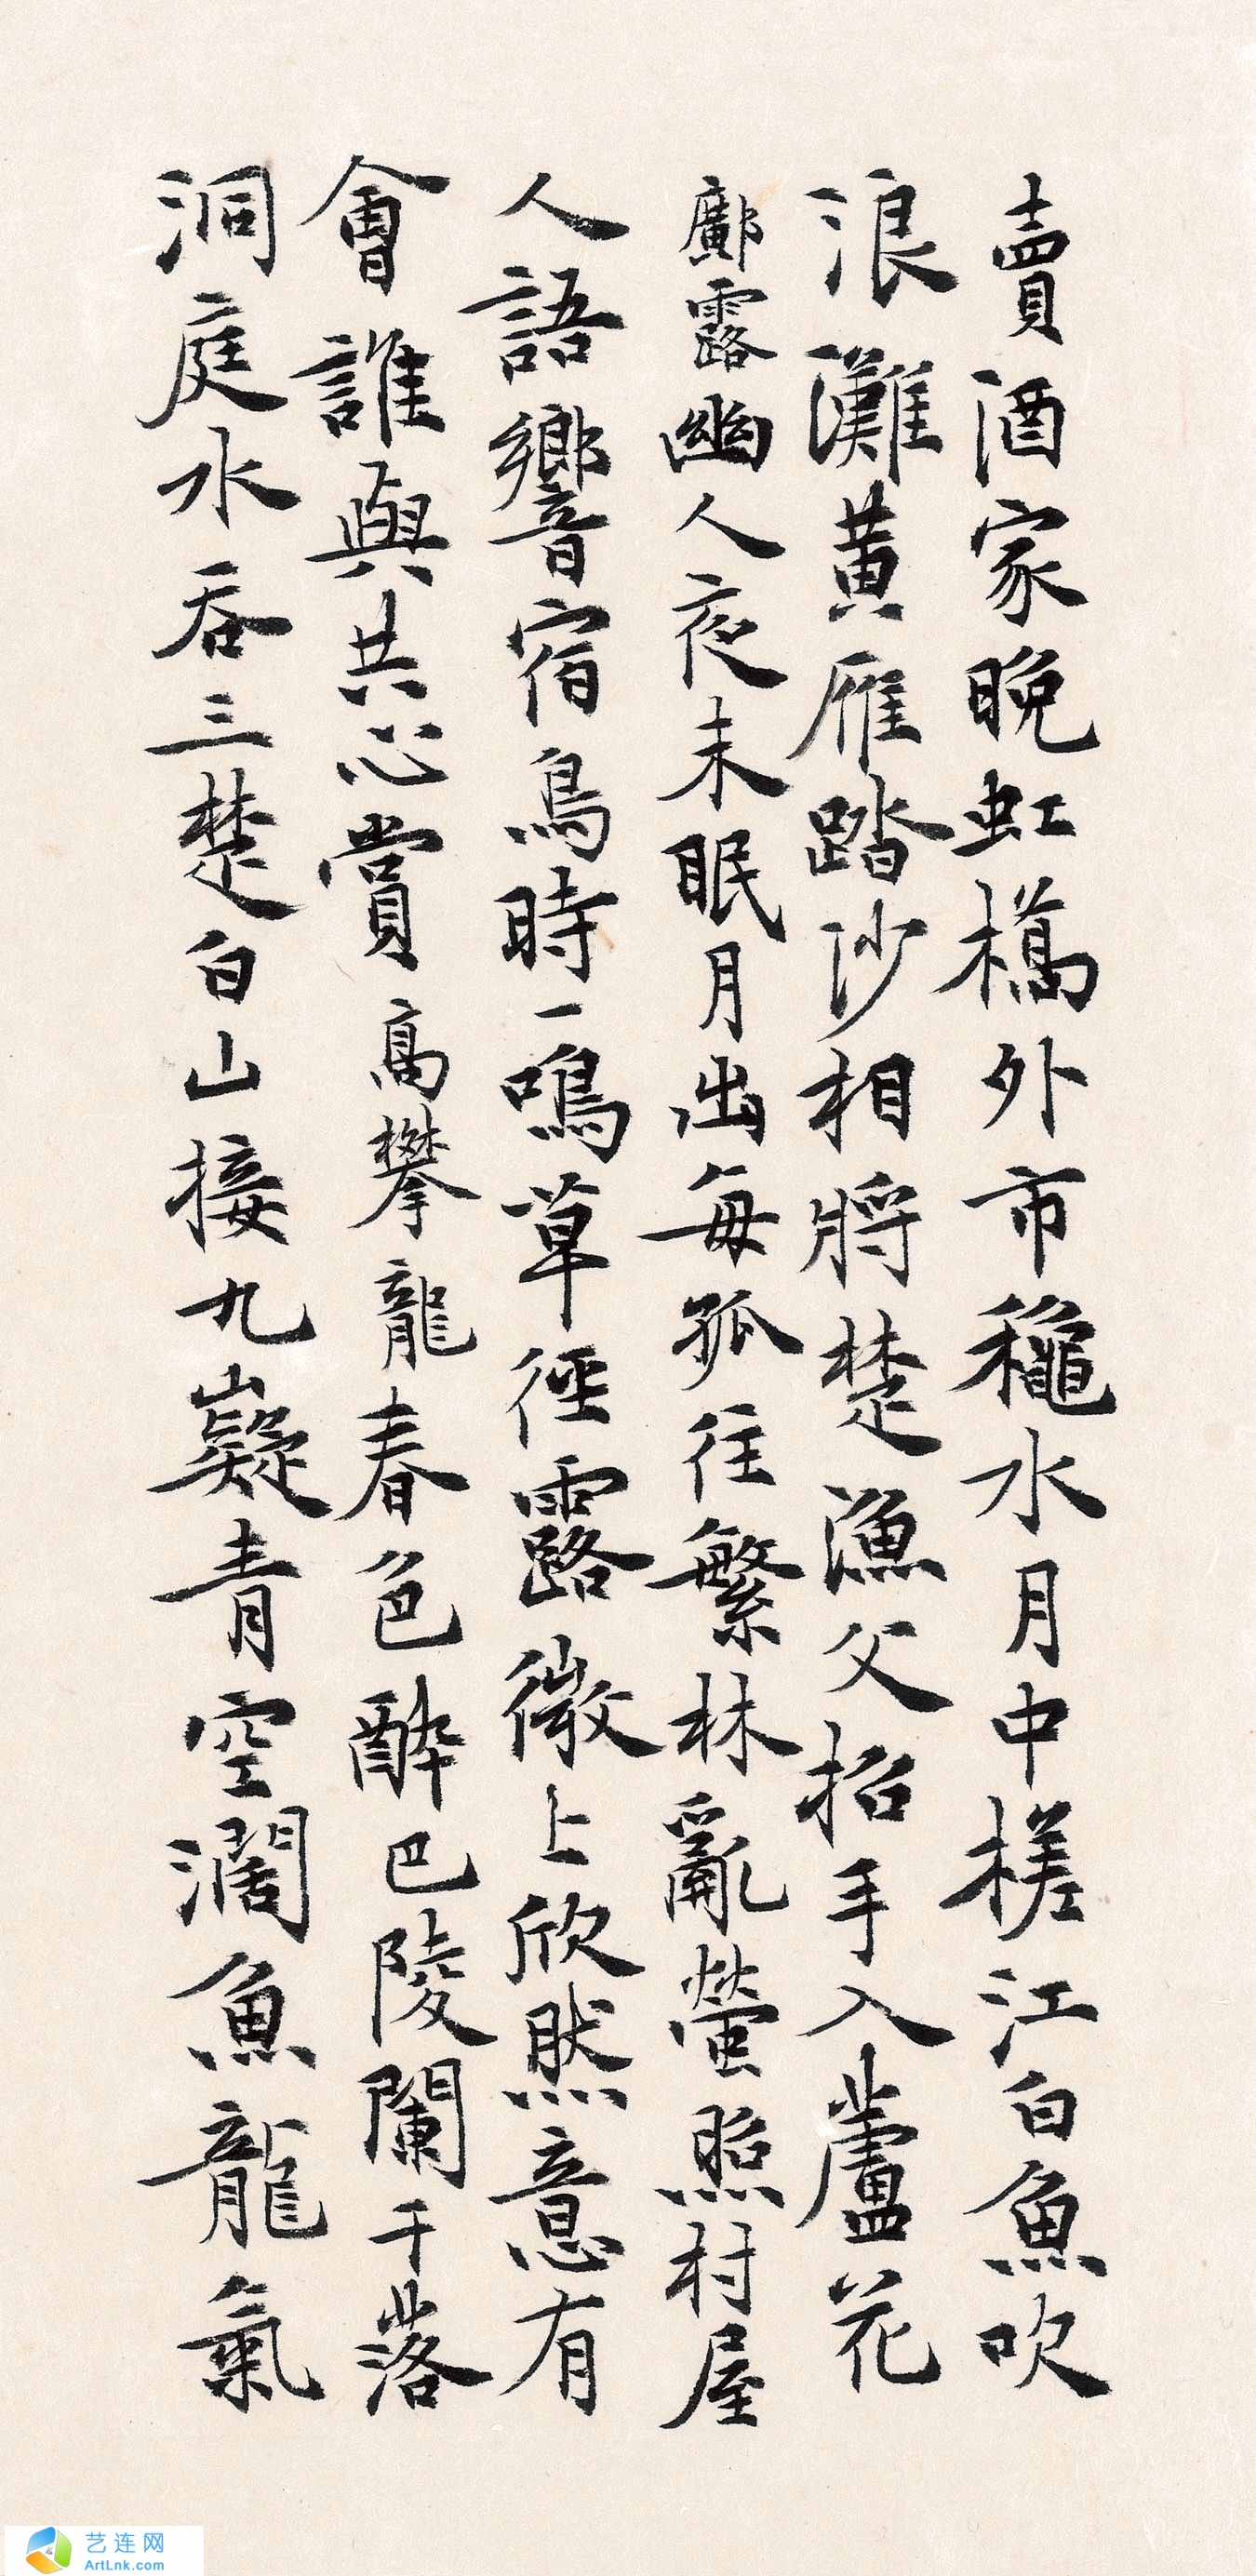 賣酒家晚虹橋外市穐水月中槎江白魚吹
浪灘黄雁踏沙相將楚漁父招手入蘆花
鄺露幽人夜未眠月出每孤往繁林亂螢照村屋
人語響宿鳥時一鳴草徑露微上欣然意有
會誰與共心賞高攀龍春色醉巴陵闌干落
洞庭水吞三楚白山接九嶷青空濶魚龍氣
艺连网
ArtLnk.com